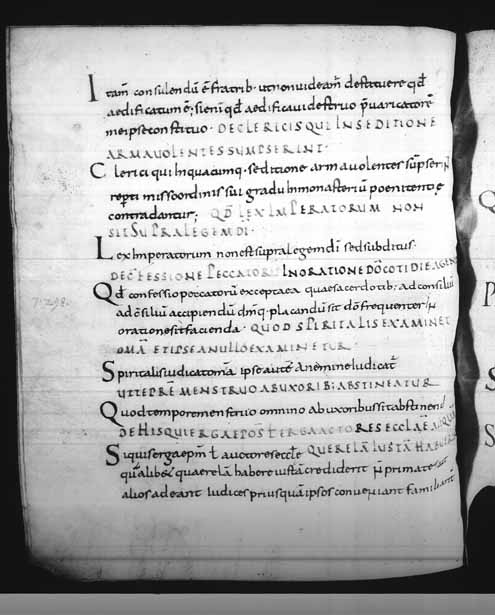 Itam̄ consulendū ē fratrib· ut non uideam̄ destituere qđ
aedificatum ē; Si enī qđ aedificaui destruo p̄uaricatorē
me ipse constituo · DE CLERICIS QUI IN SEDITIONE
ARMA UOLENTES SUMPSERINT·
Clerici qui in quacumq· seditione arma uolentes sūpser̄
reperti miss o ordinis sui gradu in monasteriū poenitentię
contradantur; QĐ LEX IMPERATORUM NON
SIT SUPRA LEGEM DI·
Lex Imperatorum non est supra legem dī sed subditus·
DE CŌFESSIONE PECCATORŪ IN ORATIONE DO COTIDIE AGEN
Qđ confessio peccatorū excepta ea quae sacerdotib; ad consiliū
ad cōsiliū accipiendū placandū sit dō frequenter in
oratione sit facienda · QUOD SPIRITALIS EXAMINET
OMĀ ET IPSE A NULLO EXAMINETUR·
Spiritalis iudicat omīa ipse autē a nemine Iudicat̄
UT TEPRĒ MENSTRUO AB UXORIB; ABSTINEATUR
Quod tempore menstruo omnino ab uxoribus sit abstinend
DE HIS QUI ERGA EPOS ł ERGA ACTORES ECCLAE ALIQUĀ
Siquis erga epm̄ ł auctores eccłe QUERELĀ IUSTĀ HABUER
quālibet quaerelā habere iustā crediderit n̄ primates uł
alios adeant Iudices prius quā ipsos conueniant familiarit̄
7298